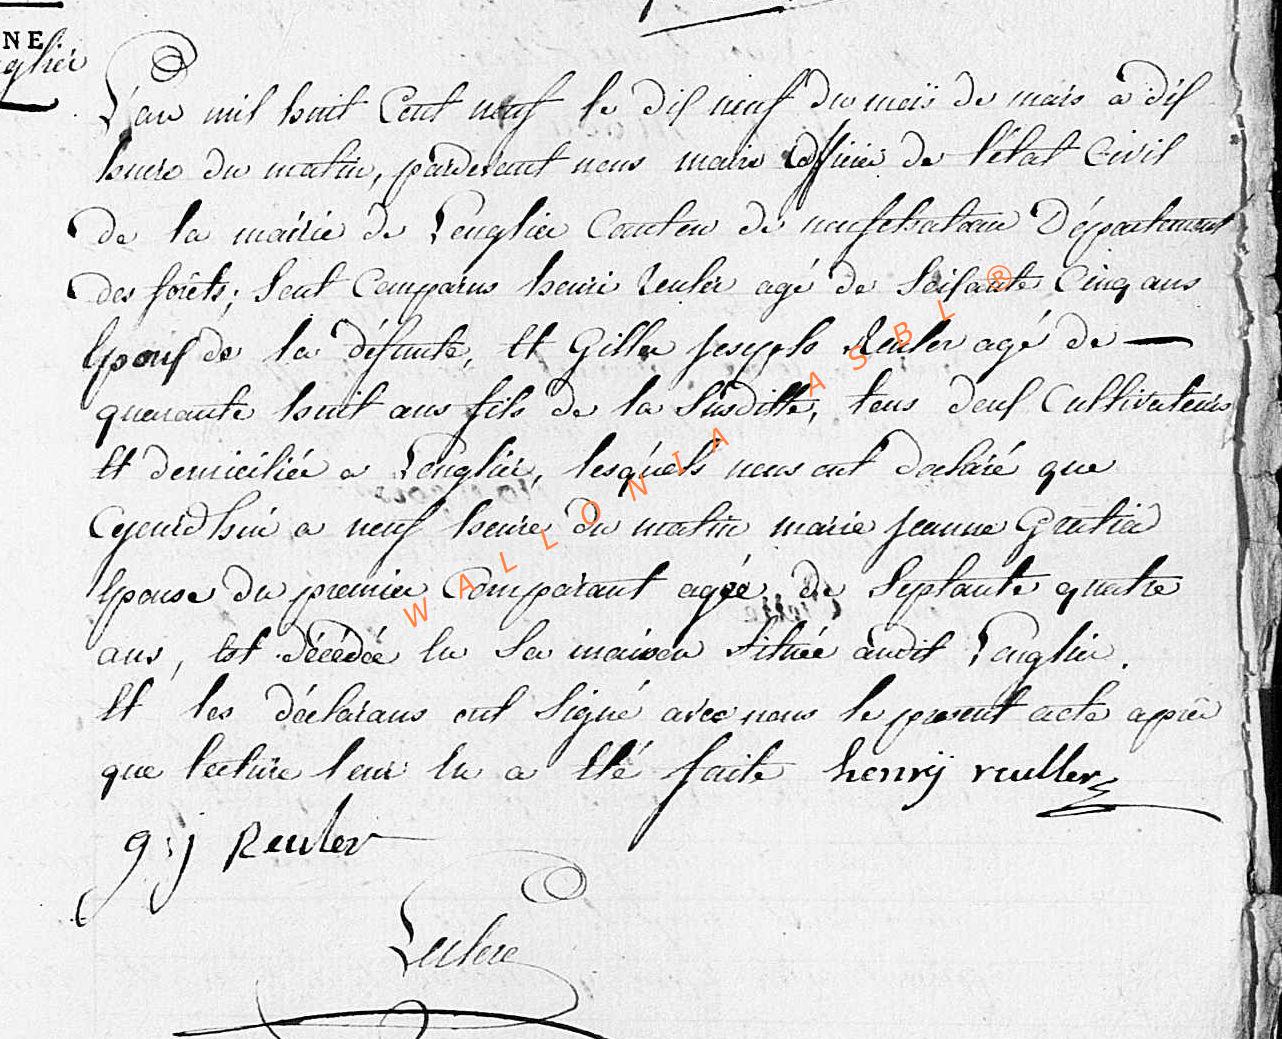 NE.
glier
L'an mil huit Cent neuf le dif neuf du mois de mars a dif
heure du matin, pardevant nous maire officier de l'état Civil
de la mairie de Longlier Canton de neufchateau Département
des forêts; sont Comparus henri Reuler agé de Soisante Cinq ans
Epouf de la défunte, Et Gille joseph Reuler agé de —
quarante huit ans fils de la Susditte, tous deuf Cultivateurs
Et domiciliée a Longlier, lesquels nous ont declaré que
Cejourdhui a neuf heure du matin marie jeanne
Epouse du premier Comparant agée de Septante quatre
ans, est décédée En Sa maison Située audit Longlier.
Et les déclarans ont Signé avec nous le present acte après
que lecture leur En a Eté faite henrÿ reuller
g : j Reuler
Leclere
WALLONIA ASBL ®